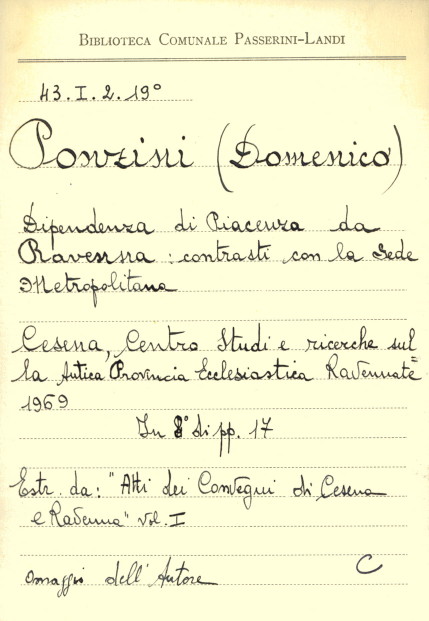 BIBLIOTECA COMUNALE PASSERINI-LANDI
43. I. 2. 19°
Ponzini (Domenico)
Dipendenza di Piacenza da
Ravenna : contrasti con la Sede
Metropolitana
Cesena, Centro Studi e ricerche sul
la Antica Provincia Ecclesiastica Ravennate=
1969
In 8° di pp. 17
Estr. da: "Atti dei Convegni di Cesena
e Ravenna" vol. I
omaggio dell'Autore
C